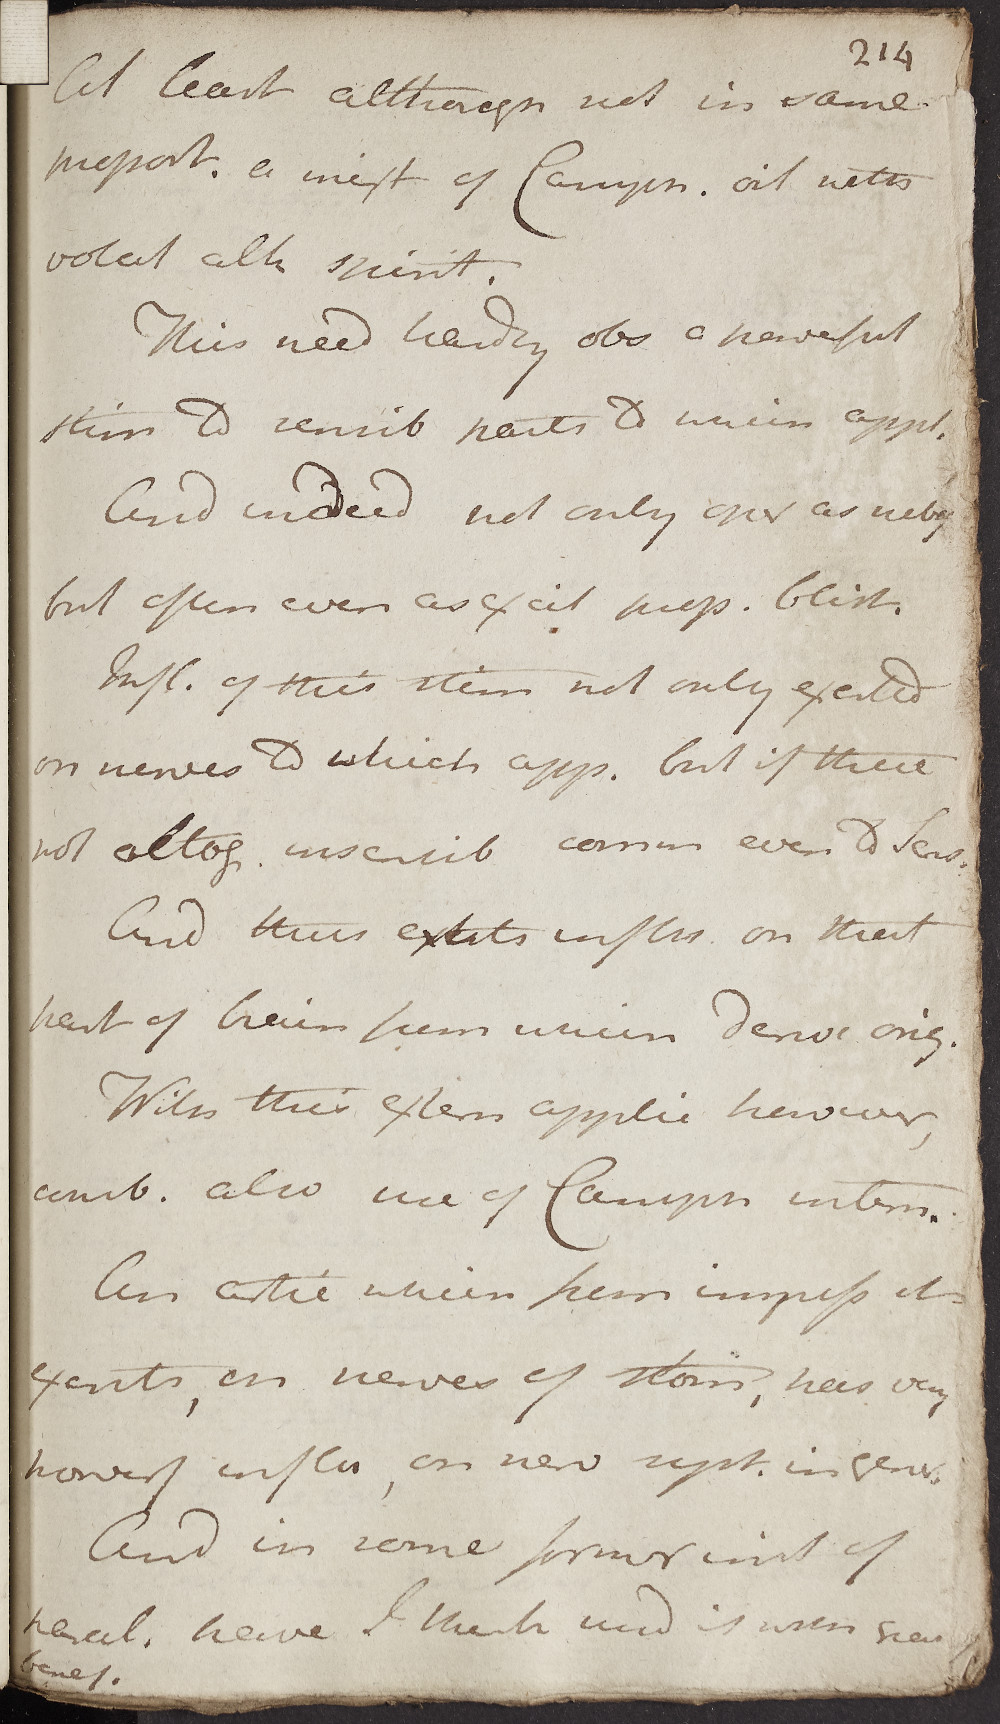 214
At least although not in same
proport. a mixt of Camph. oil with
volat alk spirit.
This need hardly obs a powerful
stim to sensib parts to which appl.
And indeed not only oper as
but often even as excit prop. blist.
Infl. of this stim not only exerted
on nerves to which app. but if these
not altog. insensib comm even to Sens.
And thus exerts influ on that
part of brain from which derive orig.
With this extern applic however,
comb. also use of Camph intern.
An artic which from impress it
exerts, on nerves of stom, has very
powerf influ, on nerv syst. in gener.
And in some former inst of
paral. have I think und it with grea
benef.